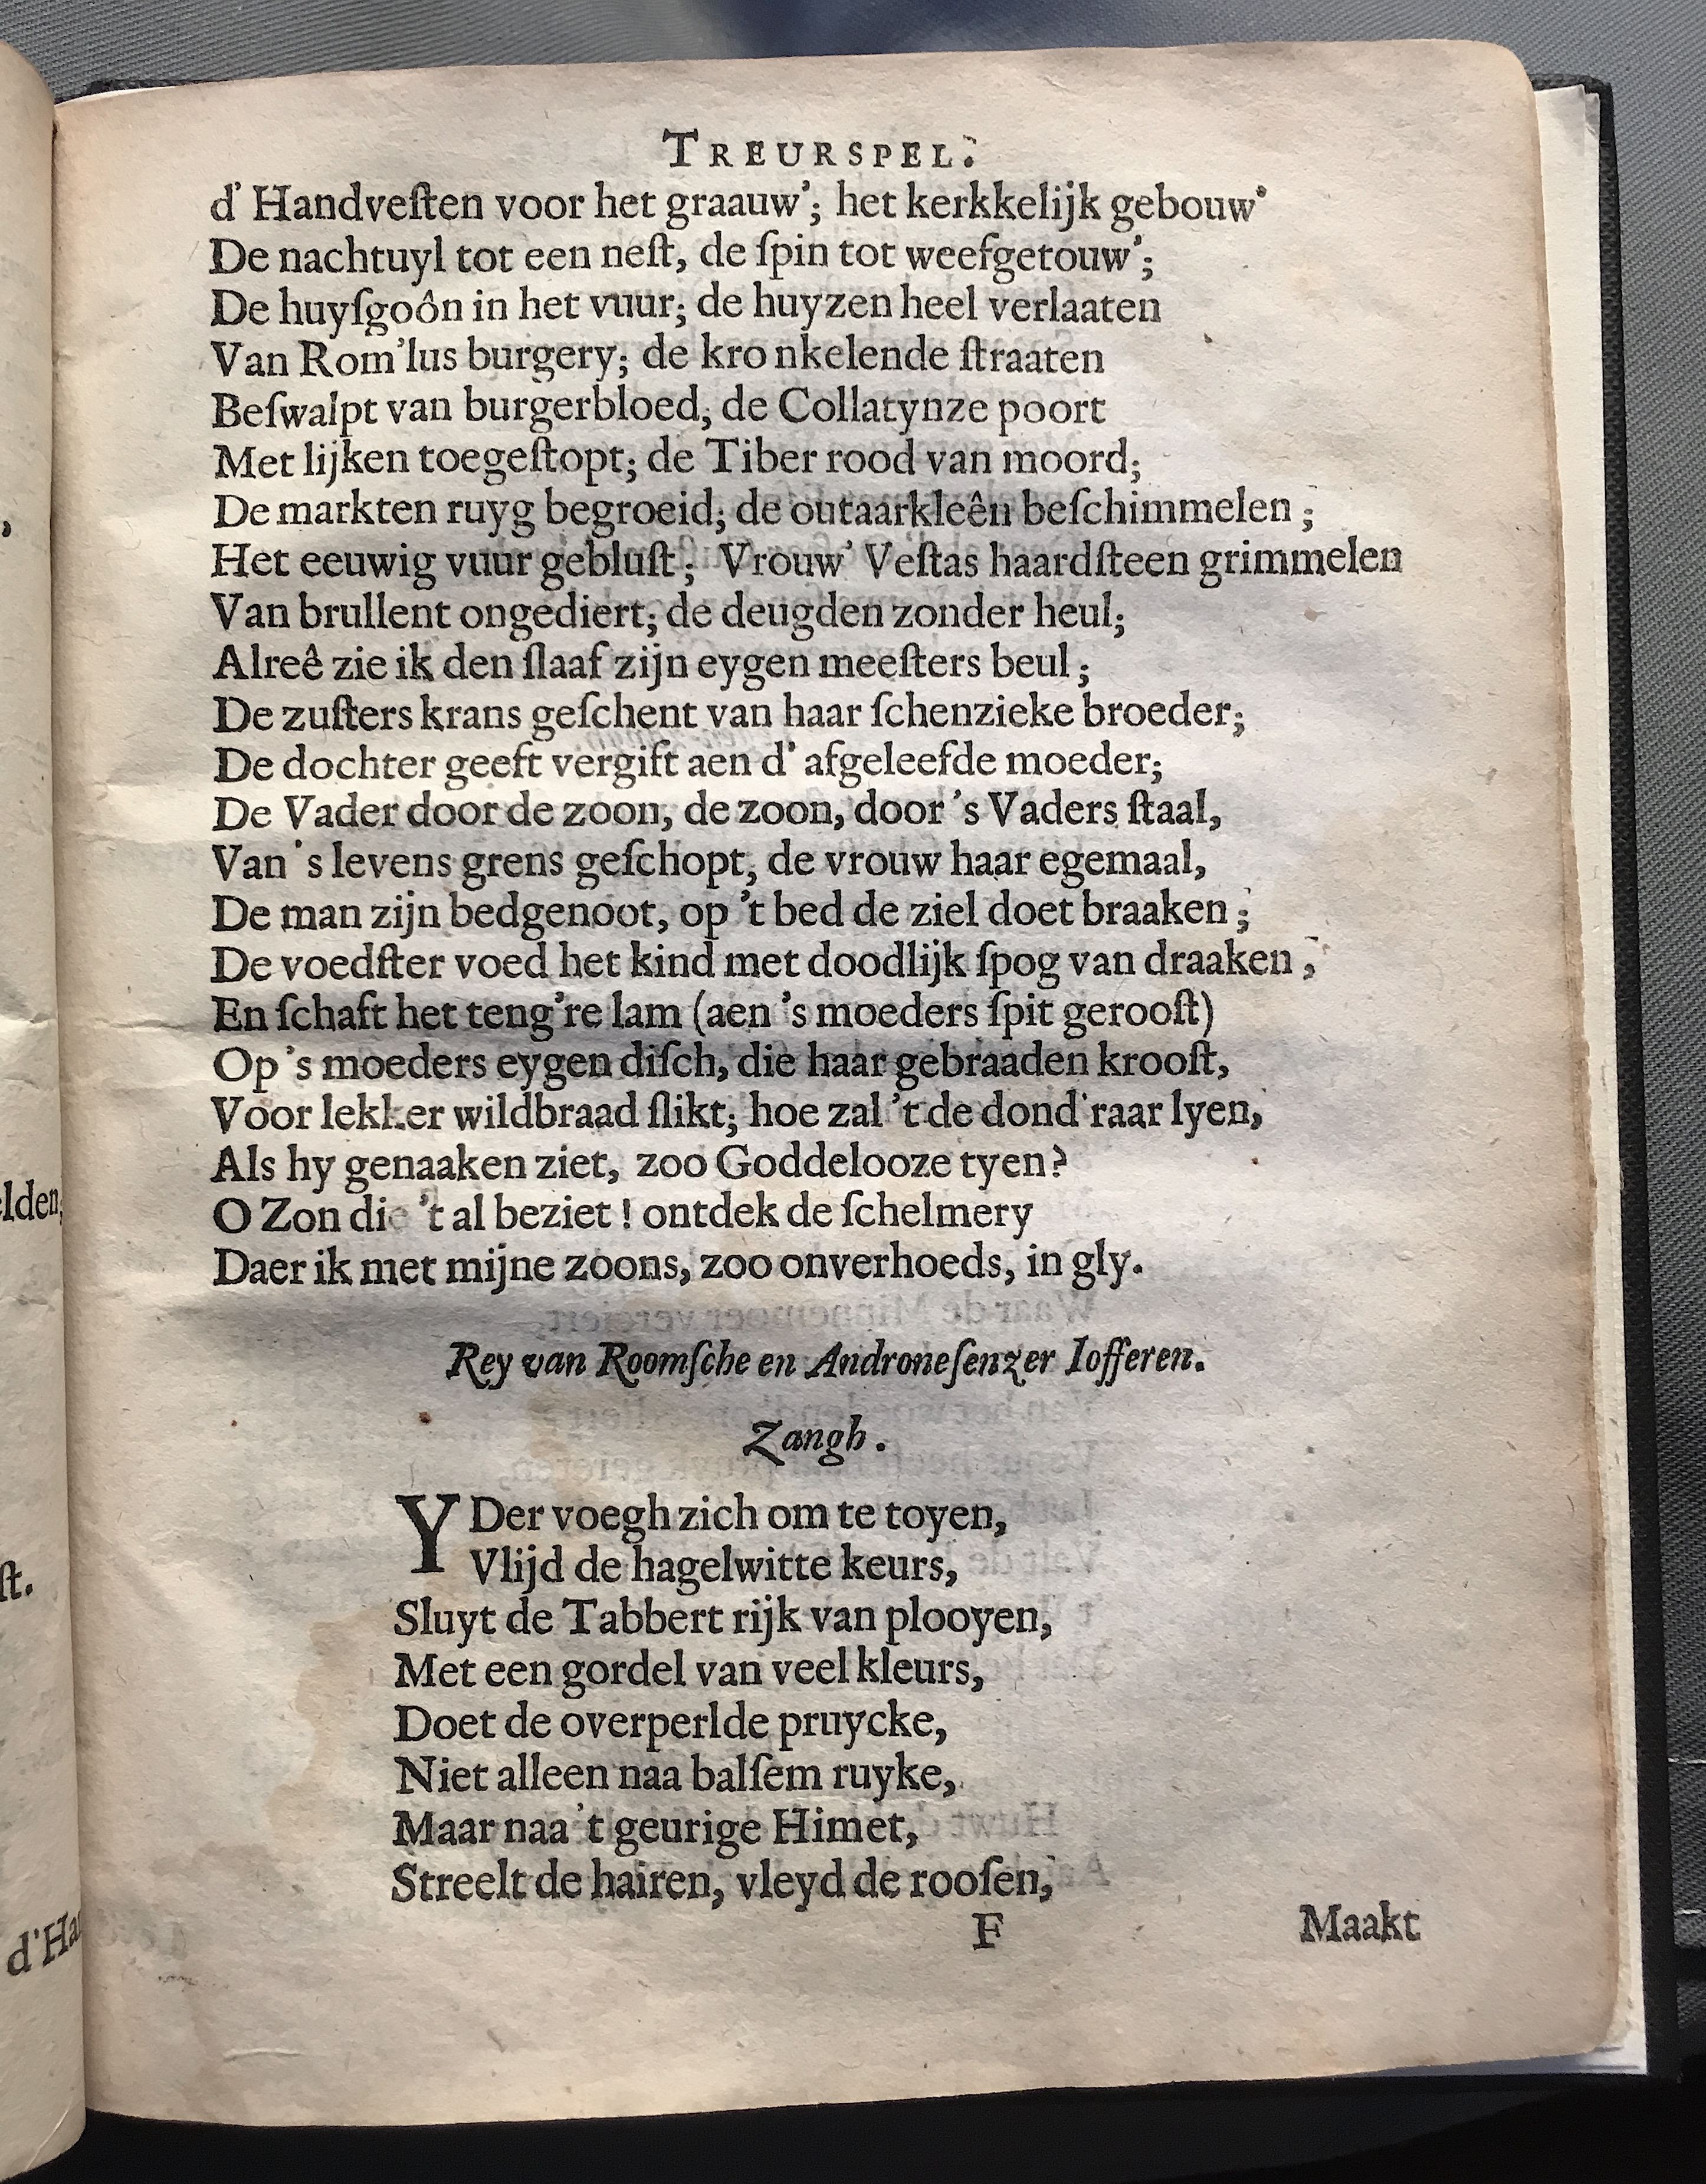 TREURSPEL.
d' Handveſten voor het graauw'; het kerkkelijk gebouw'
De nachtuyl tot een neſt, de ſpin tot weefgetouw';
De huyſgoôn in het vuur; de huyzen heel verlaaten
Van Rom'lus burgery; de kronkelende ſtraaten
Beſwalpt van burgerbloed; de Collatynze poort
Met lijken toegeſtopt; de Tiber rood van moord;
De markten ruyg begroeid; de outaarkleên beſchimmelen;
Het eeuwig vuur gebluſt; Vrouw' Veſtas haardſteen grimmelen
Van brullent ongediert; de deugden zonder heul;
Alreê zie ik den ſlaaf zijn eygen meeſters beul;
De zuſters krans geſchent van haar ſchenzieke broeder;
De dochter geeft vergift aen d' afgeleefde moeder;
De Vader door de zoon, de zoon, door 's Vaders ſtaal,
Van 's levens grens geſchopt, de vrouw haar egemaal,
De man zijn bedgenoot, op 't bed de ziel doet braaken;
De voedſter voed het kind met doodlijk ſpog van draaken,
En ſchaft het teng're lam (aen 's moeders ſpit gerooſt)
Op 's moeders eygen diſch, die haar gebraaden krooſt,
Voor lekker wildbraad ſlikt; hoe zal 't de dond'raar lyen,
Als hy genaaken ziet, zoo Goddelooze tyen?
O Zon die 't al beziet! ontdek de ſchelmery
Daer ik met mijne zoons, zoo onverhoeds, in gly.
Rey van Roomſche en Androneſenzer Iofferen.
Zangh.
YDer voegh zich om te toyen,
Vlijd de hagelwitte keurs,
Sluyt de Tabbert rijk van plooyen,
Met een gordel van veel kleurs,
Doet de overperlde pruycke,
Niet alleen naa balſem ruyke,
Maar naa 't geurige Himet,
Streelt de hairen, vleyd de rooſen,
F Maakt